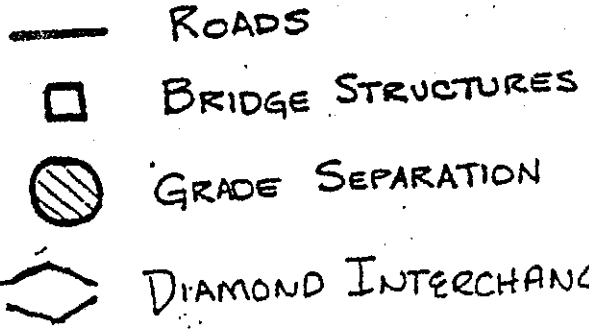 ROADS
BRIDGE STRUCTURES
GRADE SEPARATION
DIAMOND INTERCHANG